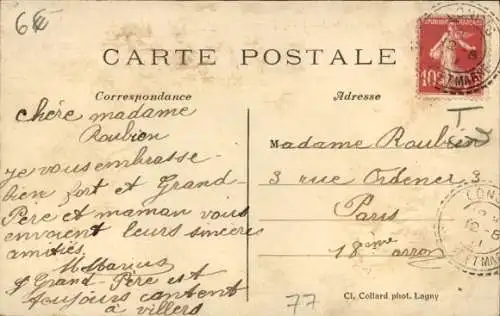 6€
CARTE POSTALE
Correspondance
Adresse
RÉPUBLIQUE FRANÇAISE
10
chère madame
Roubien
Je vous embrasse
bien fort et Grand-
Père et maman vous
envoient leurs sincères
amitiés
Grand-Père est
toujours contant
à villers
Madame Roubien
3 rue Ordener 3
Paris
18ème arron
77
Cl. Collard phot. Lagny